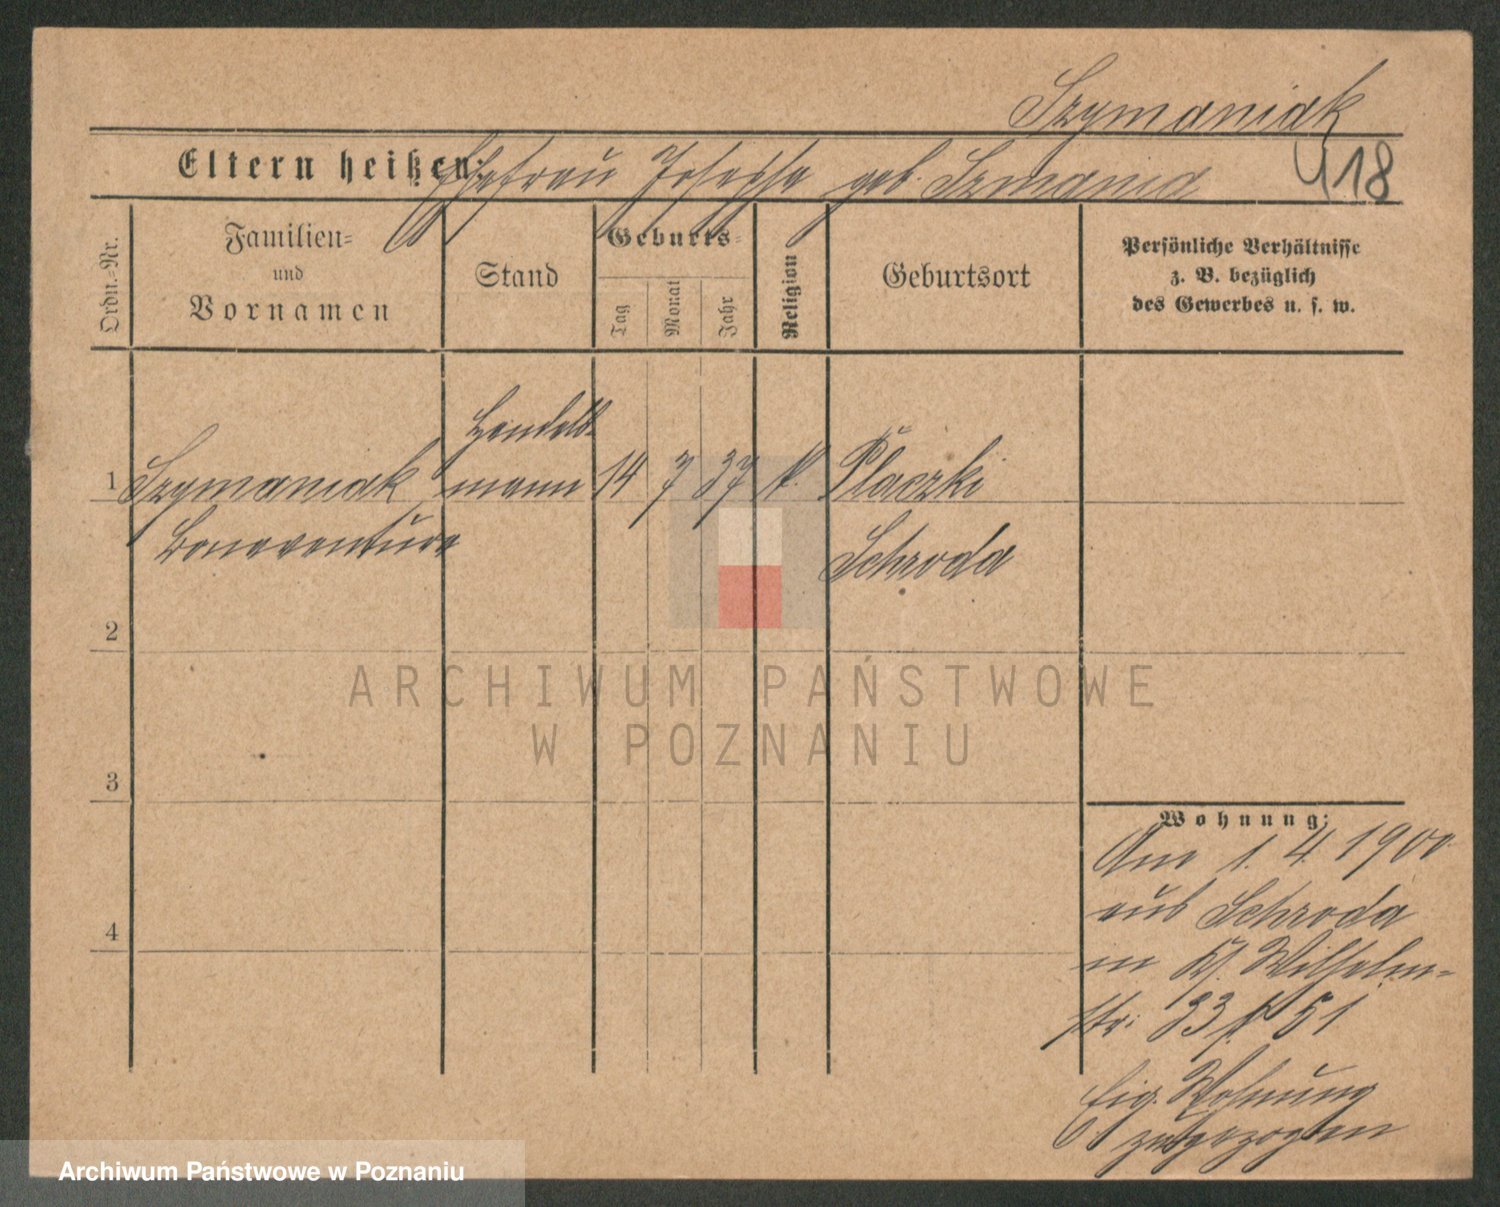 Szymaniak
Eltern heißen: Ehefrau Josepha geb. Szmania
418
Ordn.=Nr.
Familien=
und
Vornamen
Stand
Geburts=
Tag
Monat
Jahr
Religion
Geburtsort
Persönliche Verhältnisse
z. B. bezüglich
des Gewerbes u. s. w.
Handels-
1 Szymaniak mann 14 7 37 k. Płaczki
Bonaventura
Schroda
2
3
4
Wohnung:
Am 1. 4. 1900
aus Schroda
in Wilhelm-
str: 33 51
Eig. Wohnung
zugezogen
ARCHIWUM PAŃSTWOWE
W POZNANIU
Archiwum Państwowe w Poznaniu